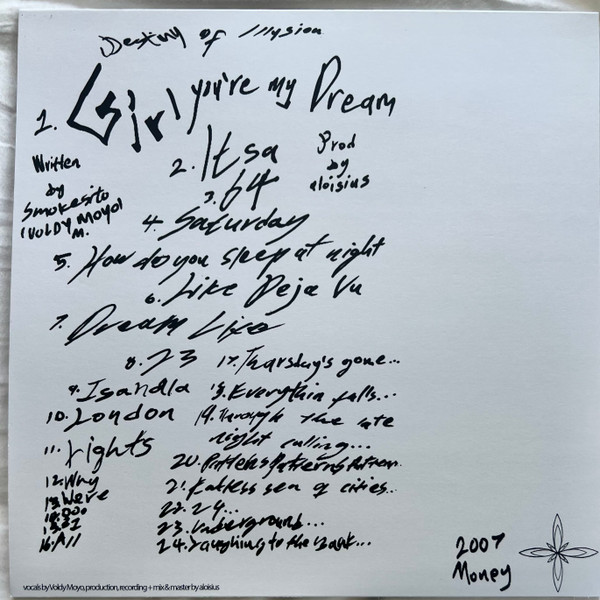 Destiny of Illusion
1. Girl you're my Dream
Written by Smokesito (VOLDY MOYO) M.
2. Itsa
Prod by aloisius
3. 64
4. Saturday
5. How do you sleep at night
6. Like Deja Vu
7. Dream Like
8. 23
9. Isandla
10. London
11. Lights
12. Why
13. Were
16. All
17. Tharsday's gone...
18. Everythin falls...
19. Through the late
night calling...
20. Patterns
21. sea of cities..
22. 24...
23. Underground...
24. Laughing to the Bank...
2007
Money
vocals by Voldy Moyo, production, recording + mix & master by aloisius